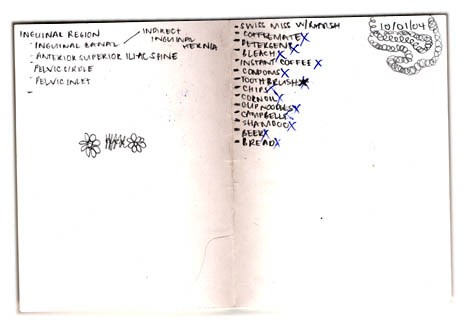 INGUINAL REGION
- INGUINAL CANAL
INDIRECT
INGUINAL
HERNIA
- ANTERIOR SUPERIOR ILIAC SPINE
- PELVIC CIRCLE
- PELVIC INLET
-
- SWISS MISS W/
- COFFEEMATE X
- DETERGENT X
- BLEACH X
- INSTANT COFFEE X
- CONDOMS X
- TOOTHBRUSH X
- CHIPS X
- CORN OIL X
- CUP NOODLES X
- CAMPBELLS X
- X
- BEER X
- BREAD X
10/01/04